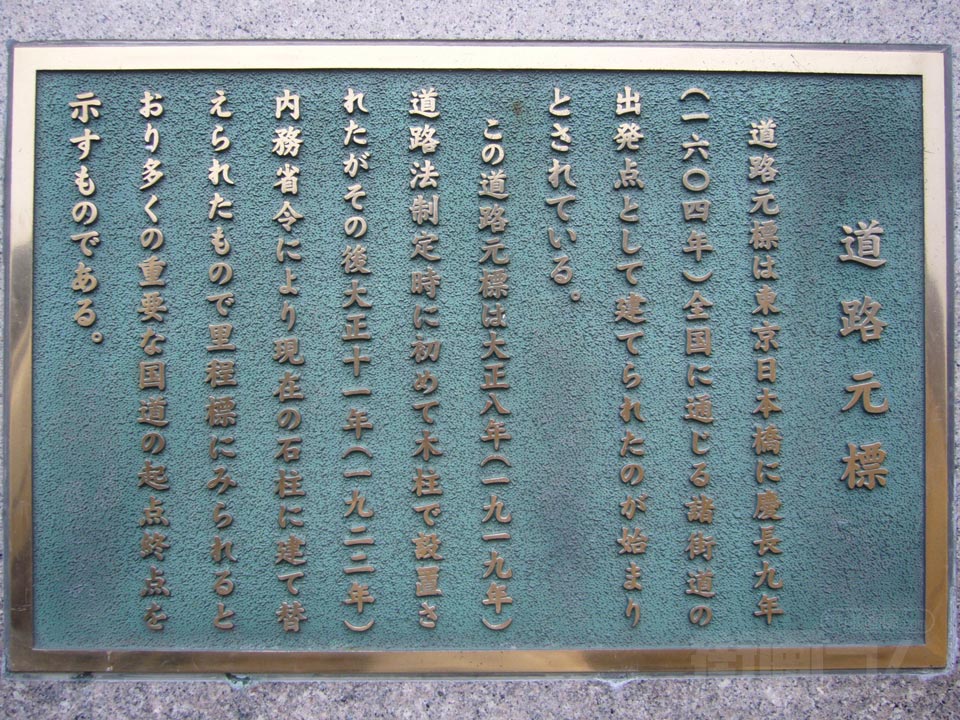 道路元標
道路元標は東京日本橋に慶長九年
(一六〇四年)全国に通じる諸街道の
出発点として建てられたのが始まり
とされている。
この道路元標は大正八年(一九一九年)
道路法制定時に初めて木柱で設置さ
れたがその後大正十一年(一九二二年)
内務省令により現在の石柱に建て替
えられたもので里程標にみられると
おり多くの重要な国道の起点終点を
示すものである。